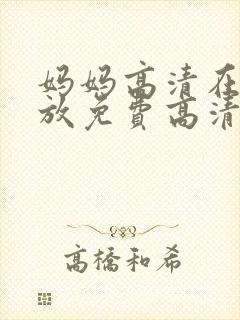 妈妈高清在
放免费高清
高橋和希